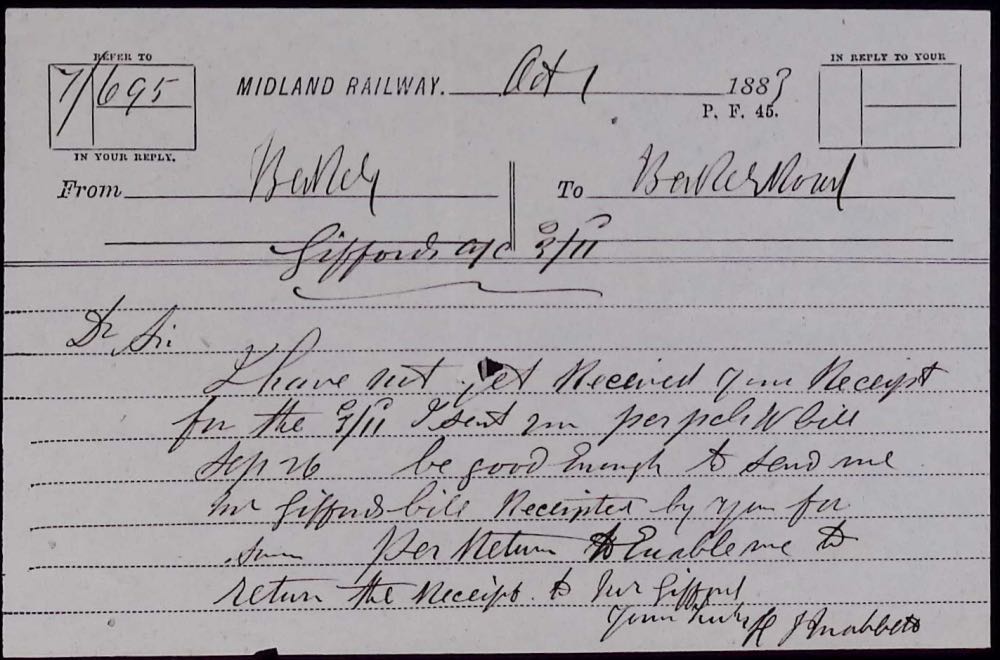 REFER TO
7/695
IN YOUR REPLY.
MIDLAND RAILWAY. Oct 1 1883
P. F. 45.
IN REPLY TO YOUR
From Berkeley To Berkeley Road
Giffords a/c 9/11
Dr Sir
I have not yet Received your Receipt
for the 9/11 I sent you per pcls W bill
Sep 26 be good Enough to send me
Mr Giffords bill Receipted by you for
Same Per Return to Enable me to
return the Receipt to Mr Gifford
Yours Truly H J